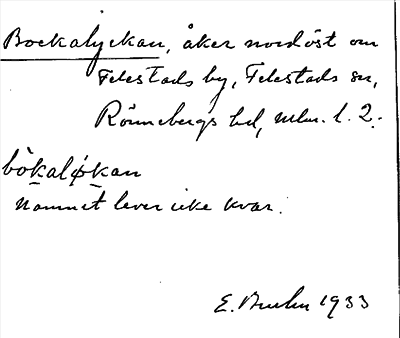 Bockalyckan, åker nordöst om
Felestads by, Felestads sn,
Rönnebergs hd, Mlm. l. 2.
bòkaløkan
Namnet lever icke kvar.
E. Bruhn 1933